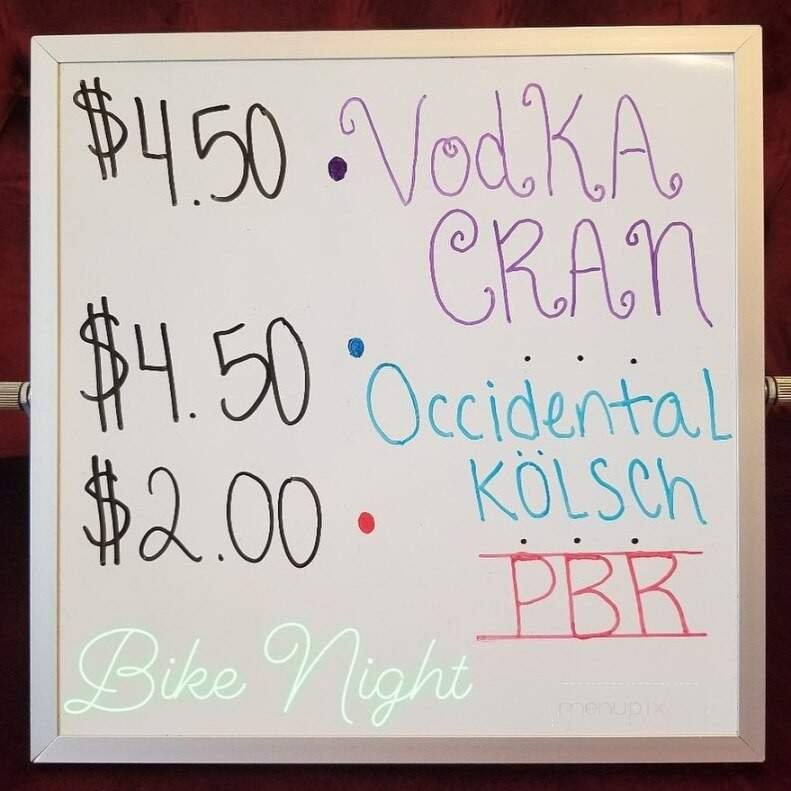 $4.50 • VodKA
CRAN
. . .
$4.50 • OccidentaL
KÖLSCh
. . .
$2.00 • PBR
Bike Night
menupix